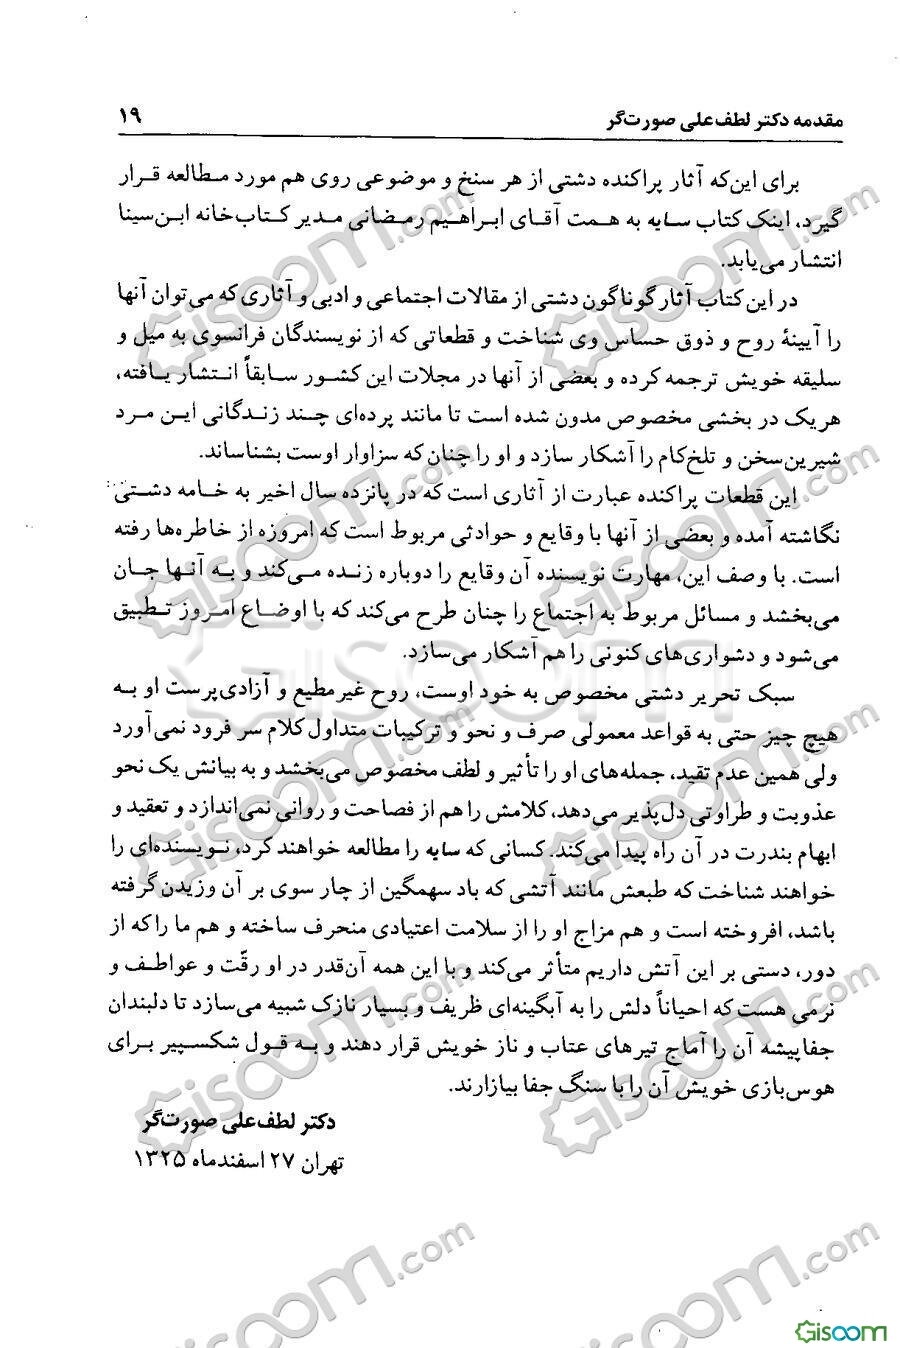 مقدمه دکتر لطف‌علی صورت‌گر ۱۹
برای این‌که آثار پراکنده دشتی از هر سنخ و موضوعی روی هم مورد مطالعه قرار
گیرد، اینک کتاب سایه به همت آقای ابراهیم رمضانی مدیر کتاب‌خانه ابن‌سینا
انتشار می‌یابد.
در این کتاب آثار گوناگون دشتی از مقالات اجتماعی و ادبی و آثاری که می‌توان آنها
را آیینهٔ روح و ذوق حساس وی شناخت و قطعاتی که از نویسندگان فرانسوی به میل و
سلیقه خویش ترجمه کرده و بعضی از آنها در مجلات این کشور سابقاً انتشار یافته،
هریک در بخشی مخصوص مدون شده است تا مانند پرده‌ای چند زندگانی این مرد
شیرین‌سخن و تلخ‌کام را آشکار سازد و او را چنان‌که سزاوار اوست بشناساند.
این قطعات پراکنده عبارت از آثاری است که در پانزده سال اخیر به خامه دشتی
نگاشته آمده و بعضی از آنها با وقایع و حوادثی مربوط است که امروزه از خاطره‌ها رفته
است. با وصف این، مهارت نویسنده آن وقایع را دوباره زنده می‌کند و به آنها جان
می‌بخشد و مسائل مربوط به اجتماع را چنان طرح می‌کند که با اوضاع امروز تطبیق
می‌شود و دشواری‌های کنونی را هم آشکار می‌سازد.
سبک تحریر دشتی مخصوص به خود اوست، روح غیرمطیع و آزادی‌پرست او به
هیچ چیز حتی به قواعد معمولی صرف و نحو و ترکیبات متداول کلام سر فرود نمی‌آورد
ولی همین عدم تقید، جمله‌های او را تأثیر و لطف مخصوص می‌بخشد و به بیانش یک نحو
عذوبت و طراوتی دل‌پذیر می‌دهد، کلامش را هم از فصاحت و روانی نمی‌اندازد و تعقید و
ابهام بندرت در آن راه پیدا می‌کند. کسانی که سایه را مطالعه خواهند کرد، نویسنده‌ای را
خواهند شناخت که طبعش مانند آتشی که باد سهمگین از چار سوی بر آن وزیدن گرفته
باشد، افروخته است و هم مزاج او را از سلامت اعتیادی منحرف ساخته و هم ما را که از
دور، دستی بر این آتش داریم متأثر می‌کند و با این همه آن‌قدر در او رقّت و عواطف و
نرمی هست که احیاناً دلش را به آبگینه‌ای ظریف و بسیار نازک شبیه می‌سازد تا دلبندان
جفاپیشه آن را آماج تیرهای عتاب و ناز خویش قرار دهند و به قول شکسپیر برای
هوس‌بازی خویش آن را با سنگ جفا بیازارند.
دکتر لطف‌علی صورت‌گر
تهران ۲۷ اسفندماه ۱۳۲۵
Gisoom